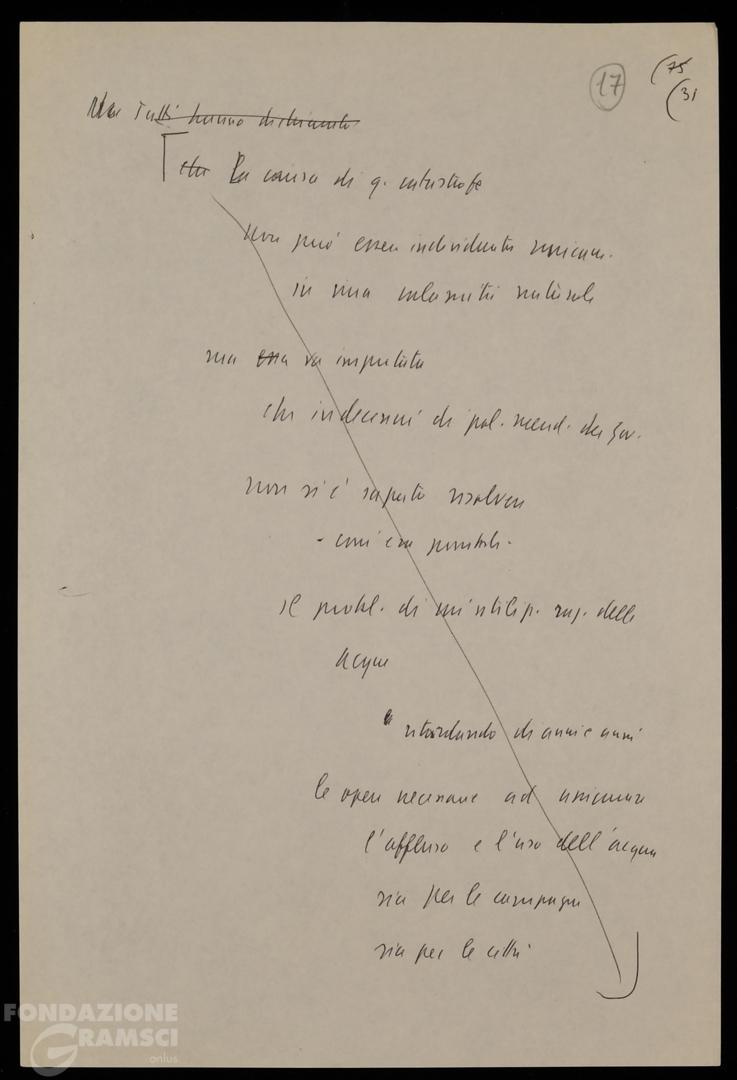 17
(75
(31
Ma tutti hanno dichiarato
che La causa di q. catastrofe
non può essere individuata unicam.
in una calamità naturale
ma essa va imputata
che in decenni di pol. merid. dei gov.
non si è saputo risolvere
- com'era possibile -
il probl. di un' utiliz. raz. delle
acque
e ritardando di anni e anni
le opere necessarie ad assicurare
l'afflusso e l'uso dell'acqua
sia per le campagne
sia per le città
FONDAZIONE
GRAMSCI
onlus